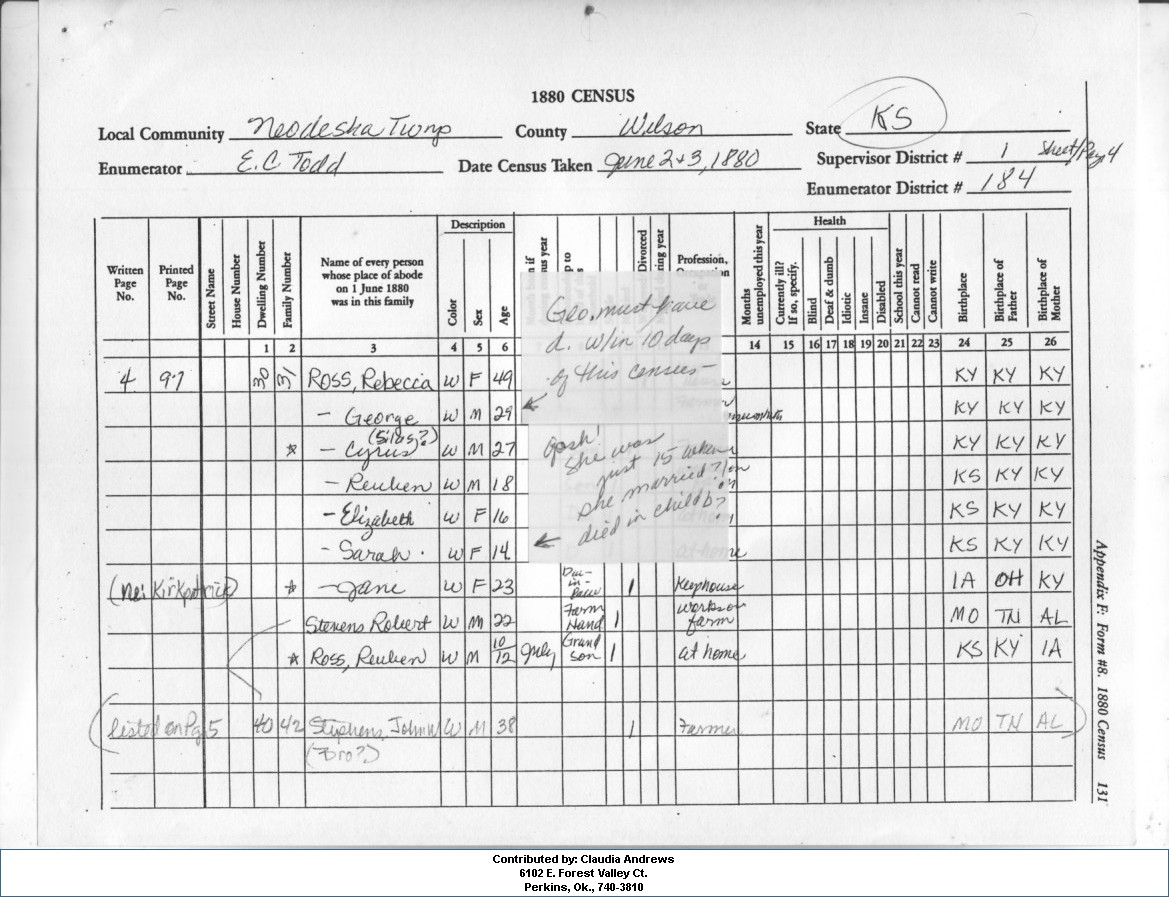 1880 CENSUS
Local Community Neodeska Twnp County Wilson State KS
Enumerator E.C. Todd Date Census Taken June 2+3, 1880 Supervisor District # 1 Sheet/Pg 4
Enumerator District # 184
Description Health
Written Page No. Printed Page No. Street Name House Number Dwelling Number Family Number Name of every person whose place of abode on 1 June 1880 was in this family Color Sex Age Divorced Profession, Months unemployed this year Currently ill? If so, specify. Blind Deaf & dumb Idiotic Insane Disabled School this year Cannot read Cannot write Birthplace Birthplace of Father Birthplace of Mother
1 2 3 4 5 6 14 15 16 17 18 19 20 21 22 23 24 25 26
Geo. must have
d. w/in 10 days
of this census-
4 97 30 31 ROSS, Rebecca W F 49 KY KY KY
- George W M 29 KY KY KY
(Silas?)
* - Cyrus W M 27 KY KY KY
Gosh!
She was
just 15 when
she married?
died in childb?
- Reuben W M 18 KS KY KY
- Elizabeth W F 16 KS KY KY
- Sarah. W F 14 at home KS KY KY
(Nei Kirkpatrick) * - Jane W F 23 1 Keephouse IA OH KY
Stevens Robert W M 22 Farm Hand 1 works on farm MO TN AL
* Ross, Reuben W M 10/12 July Grand son 1 at home KS KY IA
(Listed on Pg 5 40 42 Stephens, John W W M 38 1 Farmer MO TN AL)
(Bro?)
Appendix F: Form #8. 1880 Census 131
Contributed by: Claudia Andrews
6102 E. Forest Valley Ct.
Perkins, Ok., 740-3810